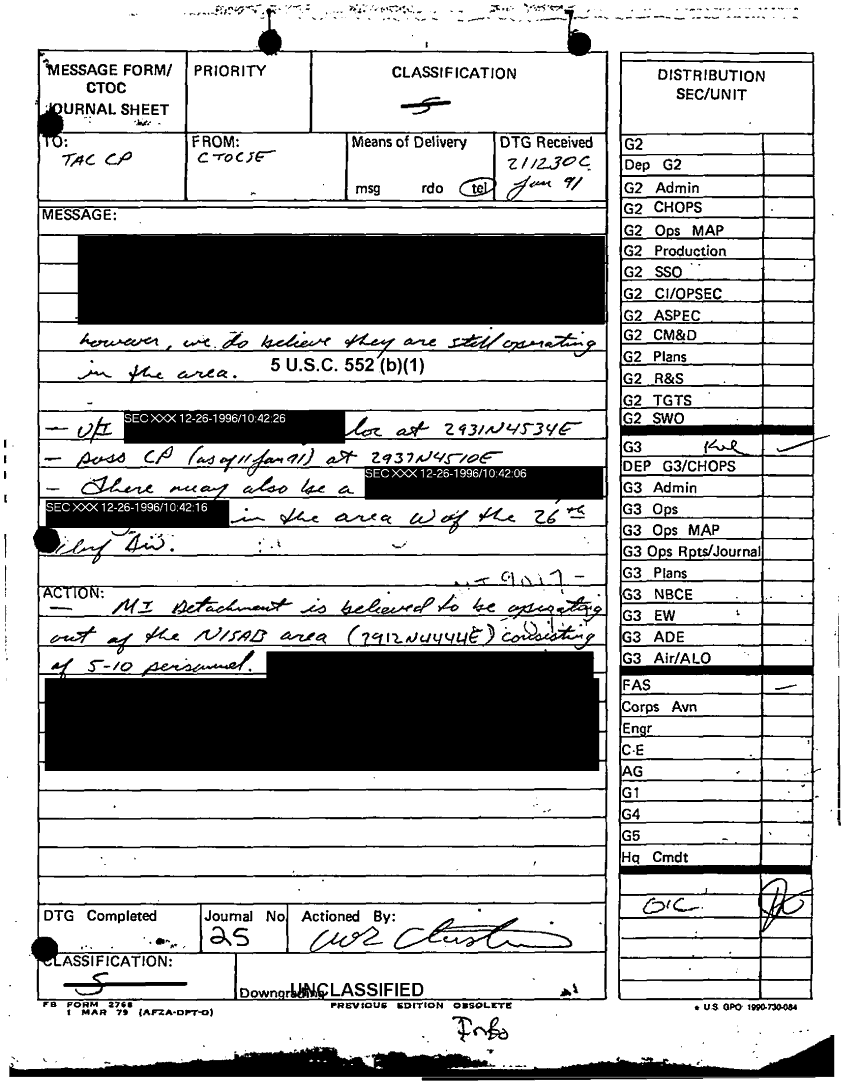 MESSAGE FORM/
CTOC
JOURNAL SHEET
PRIORITY
CLASSIFICATION
S
TO:
TAC CP
FROM:
CTOCSE
Means of Delivery
msg rdo tel
DTG Received
211230C
Jan 91
MESSAGE:
however, we do believe they are still operating
in the area. 5 U.S.C. 552 (b)(1)
SEC XXX 12-26-1996/10:42:26
- U/I loc at 2931N4534E
- poss CP (as of 11 Jan 91) at 2937N4510E
- There may also be a SEC XXX 12-26-1996/10:42:06
SEC XXX 12-26-1996/10:42:16 in the area W of the 26th
Div.
ACTION:
- MI Detachment is believed to be operating
out of the NISAB area (2912N4444E) consisting
of 5-10 personnel.
DTG Completed
Journal No
25
Actioned By:
CLASSIFICATION:
S
Downgrading
UNCLASSIFIED
FB FORM 2768
1 MAR 79 (AFZA-DPT-O)
PREVIOUS EDITION OBSOLETE
Info
DISTRIBUTION
SEC/UNIT
G2
Dep G2
G2 Admin
G2 CHOPS
G2 Ops MAP
G2 Production
G2 SSO
G2 CI/OPSEC
G2 ASPEC
G2 CM&D
G2 Plans
G2 R&S
G2 TGTS
G2 SWO
G3
DEP G3/CHOPS
G3 Admin
G3 Ops
G3 Ops MAP
G3 Ops Rpts/Journal
G3 Plans
G3 NBCE
G3 EW
G3 ADE
G3 Air/ALO
FAS
Corps Avn
Engr
C-E
AG
G1
G4
G5
Hq Cmdt
OIC
U.S. GPO 1990-730-084